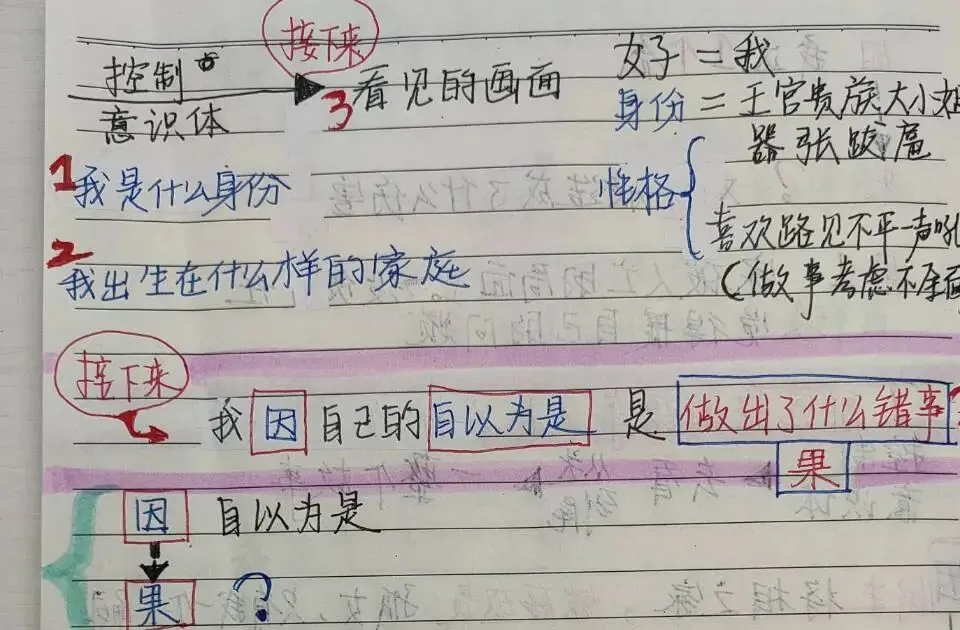 接下来
控制
意识体
3 看见的画面
女子 = 我
身份 = 王宫贵族大小姐
嚣张跋扈
性格
喜欢路见不平一声吼
(做事考虑不全面
1 我是什么身份
2 我出生在什么样的家庭
接下来
我 因 自己的 自以为是 是 做出了什么错事
果
因 自以为是
果 ?